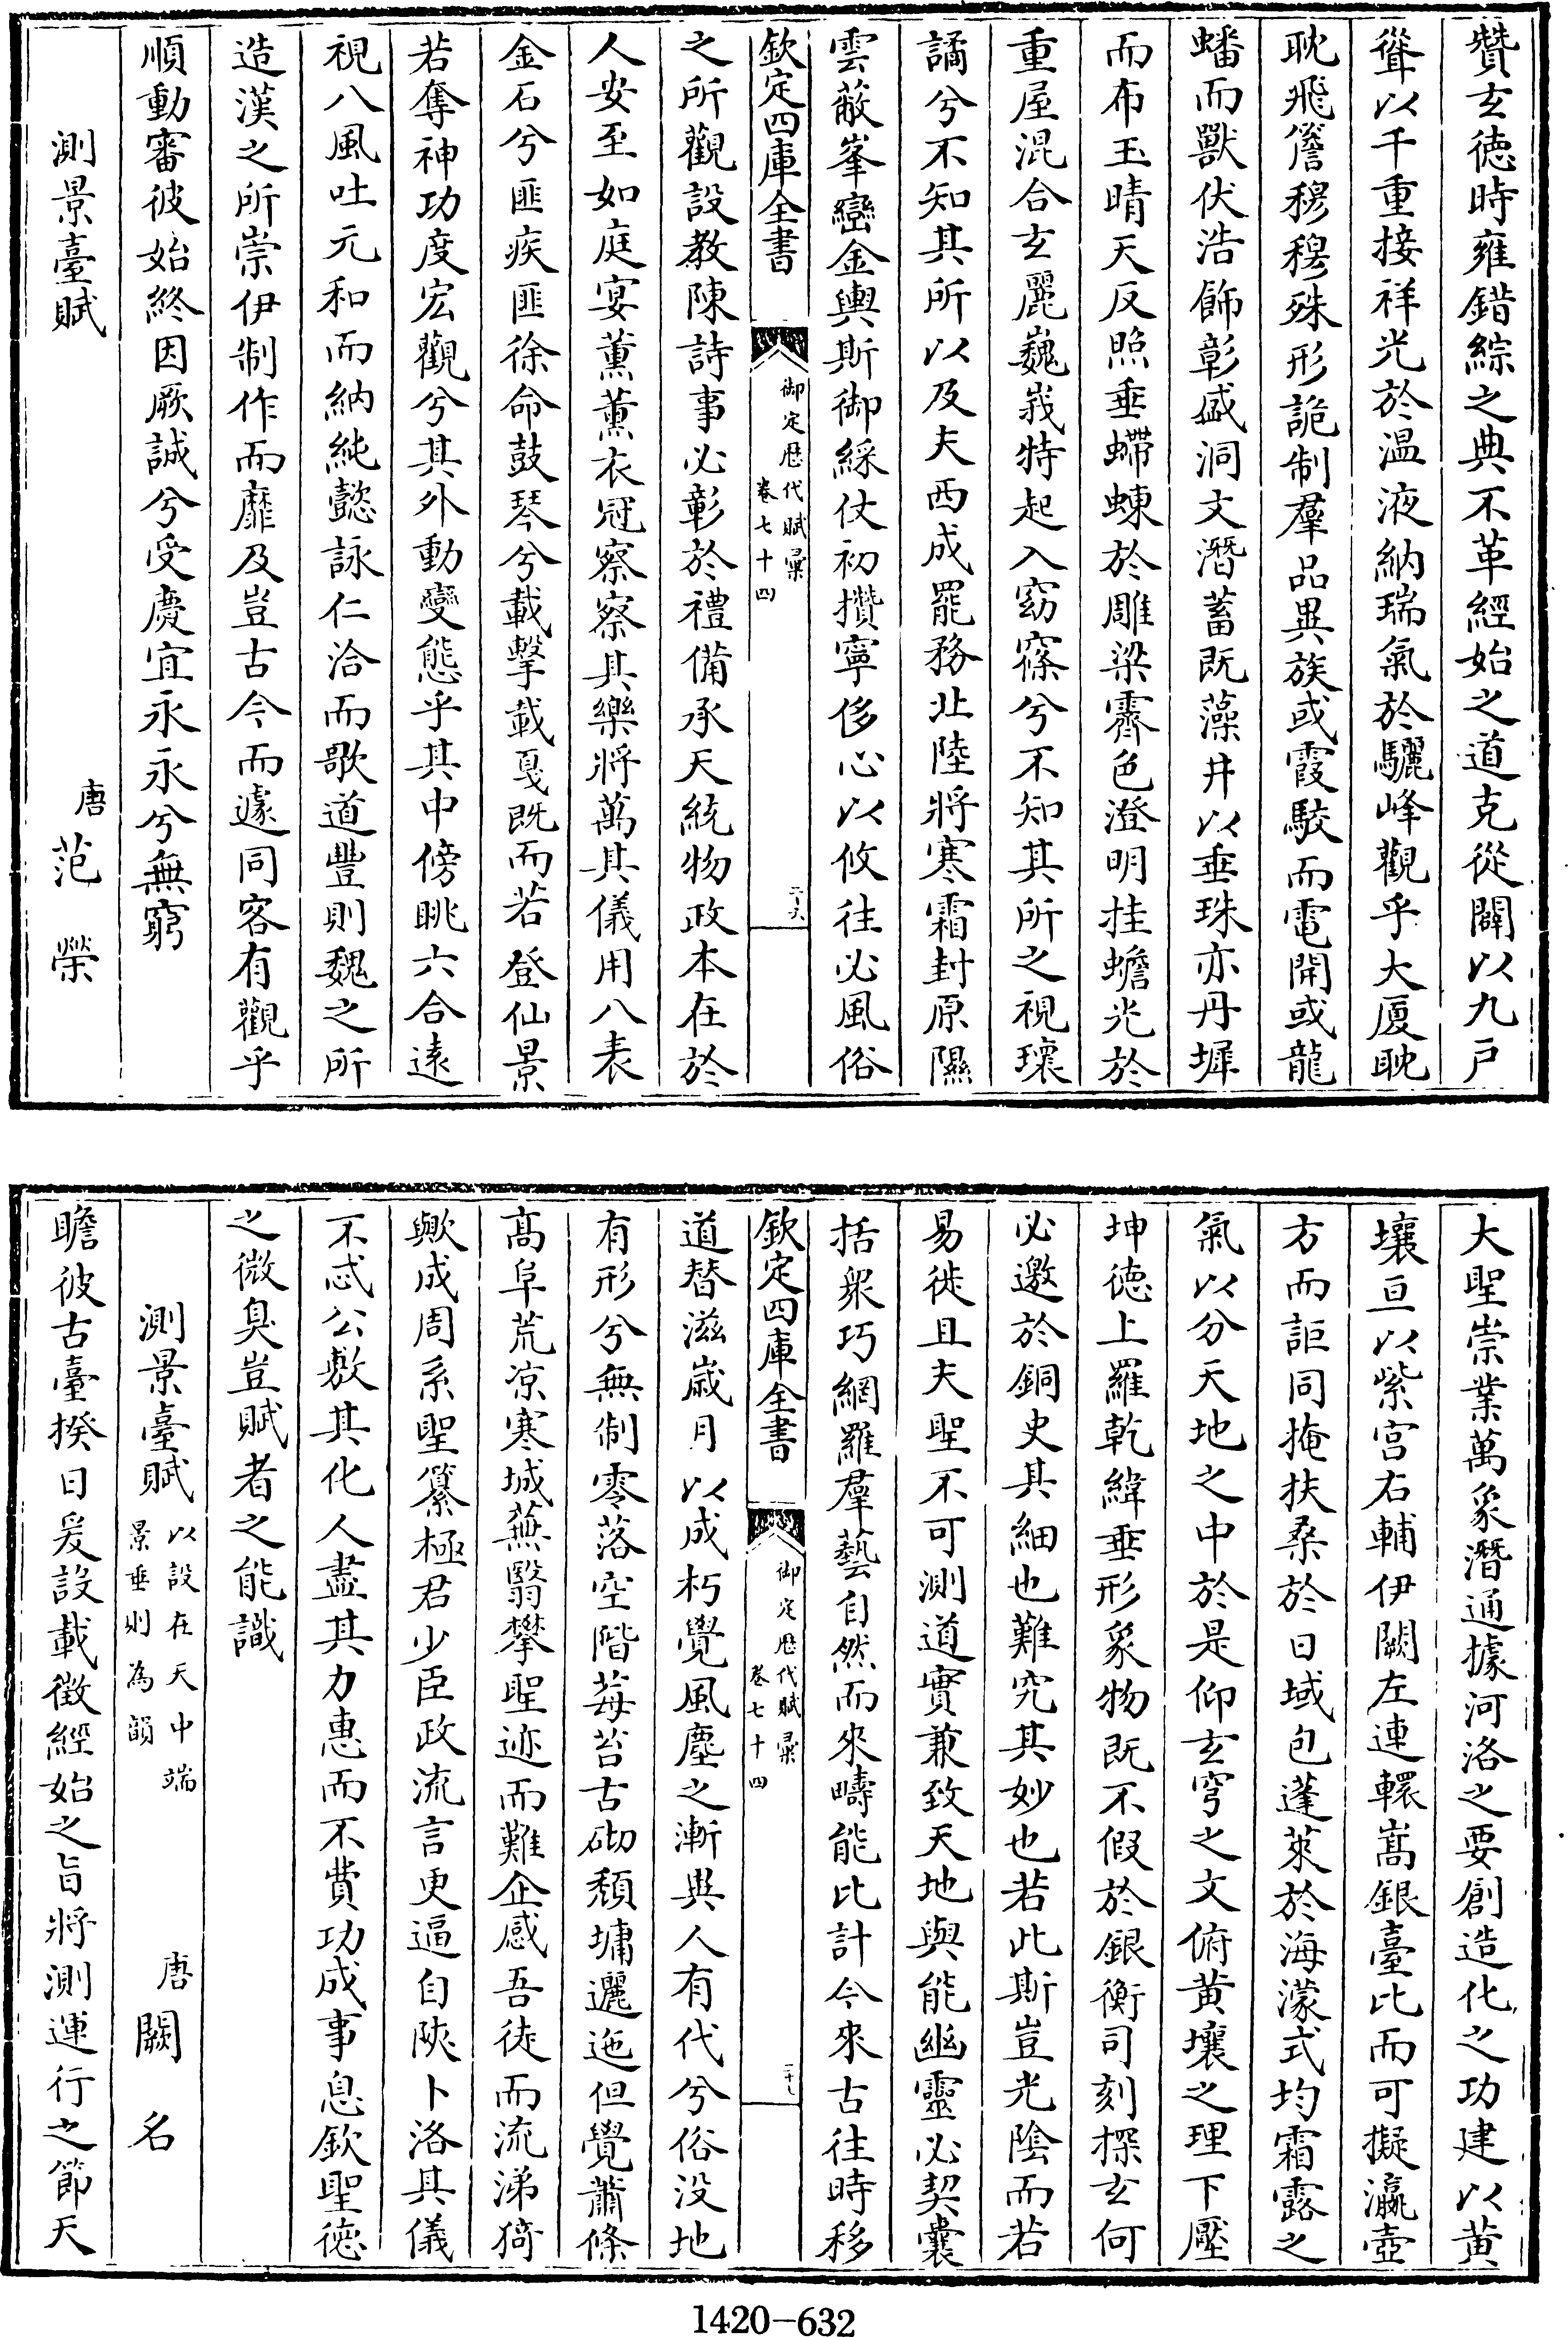 贊玄徳時雍錯綜之典不革經始之道克從闢以九戸
聳以千重接祥光於温液納瑞氣於驪峰觀乎大廈耽
耽飛簷穆穆殊形詭制羣品異族或霞駮而電開或龍
蟠而獸伏浩飾彰盛洞文潛蓄既藻井以垂珠亦丹墀
而布玉晴天反照垂螮蝀於雕梁霽色澄明挂蟾光於
重屋混合玄麗巍峩特起入窈窱兮不知其所之視瓌
譎兮不知其所以及夫西成罷務北陸將寒霜封原隰
雲蔽峯巒金輿斯御綵仗初攢寧侈心以攸往必風俗
欽定四庫全書
御定歴代賦彚
卷七十四
二十六
之所觀設教陳詩事必彰於禮備承天統物政本在於
人安至如庭宴薰薰衣冠察察其樂將萬其儀用八表
金石兮匪疾匪徐命鼓琴兮載擊載戛既而若登仙景
若奪神功度宏觀兮其外動變態乎其中傍眺六合遠
視八風吐元和而納純懿詠仁洽而歌道豐則魏之所
造漢之所崇伊制作而靡及豈古今而遽同客有觀乎
順動審彼始終因厥誠兮受慶宜永永兮無窮
測景臺賦
唐范榮
大聖崇業萬象潛通據河洛之要創造化之功建以黄
壤亘以紫宫右輔伊闕左連轘嵩銀臺比而可擬瀛壺
方而詎同掩扶桑於日域包蓬萊於海濛式均霜露之
氣以分天地之中於是仰玄穹之文俯黄壤之理下壓
坤德上羅乾緯垂形象物既不假於銀衡司刻探玄何
必邀於銅史其細也難究其妙也若此斯豈光陰而若
易徙且夫聖不可測道實兼致天地與能幽靈必契囊
括衆巧網羅羣藝自然而來疇能比計今來古往時移
欽定四庫全書
御定歴代賦彚
卷七十四
二十七
道替滋歳月以成朽覺風塵之漸與人有代兮俗没地
有形兮無制零落空階莓苔古砌頽墉邐迤但覺蕭條
髙阜荒凉寒城蕪翳攀聖迹而難企感吾徒而流涕猗
歟成周系聖纂極君少臣政流言更逼自陜卜洛其儀
不忒公敷其化人盡其力惠而不費功成事息欽聖徳
之微臭豈賦者之能識
測景臺賦
以設在天中端
景垂則為韻
唐闕名
瞻彼古臺揆日爰設載徴經始之旨將測運行之節天
1420-632